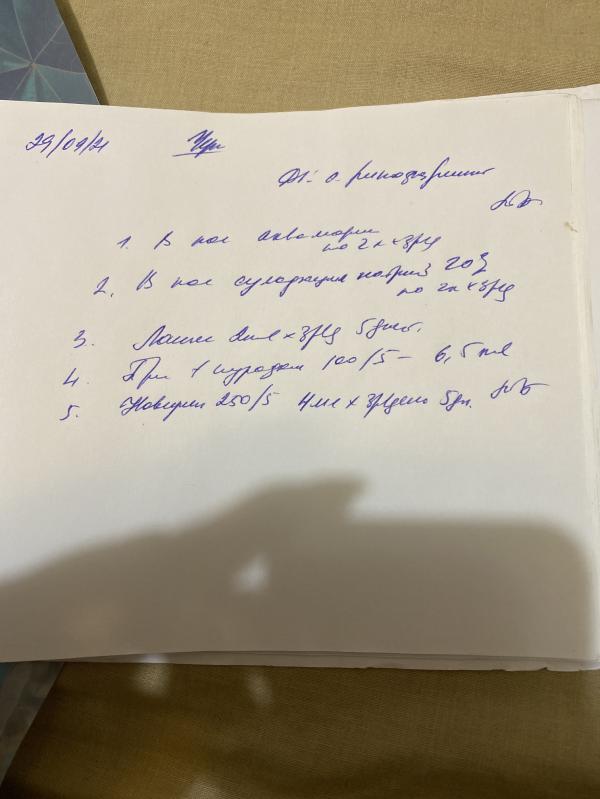 29/09/21
Ds: о. ринофарингит
1. В нос аквамарис
по 2к х 3р/д
2. В нос сульфацил натрий 20%
по 2к х 3р/д
3. 2мл х 3р/д 5дней.
4. При t нурофен 100/5 – 6,5 мл
5. Новирин 250/5 4мл х 3р/день 5дн.